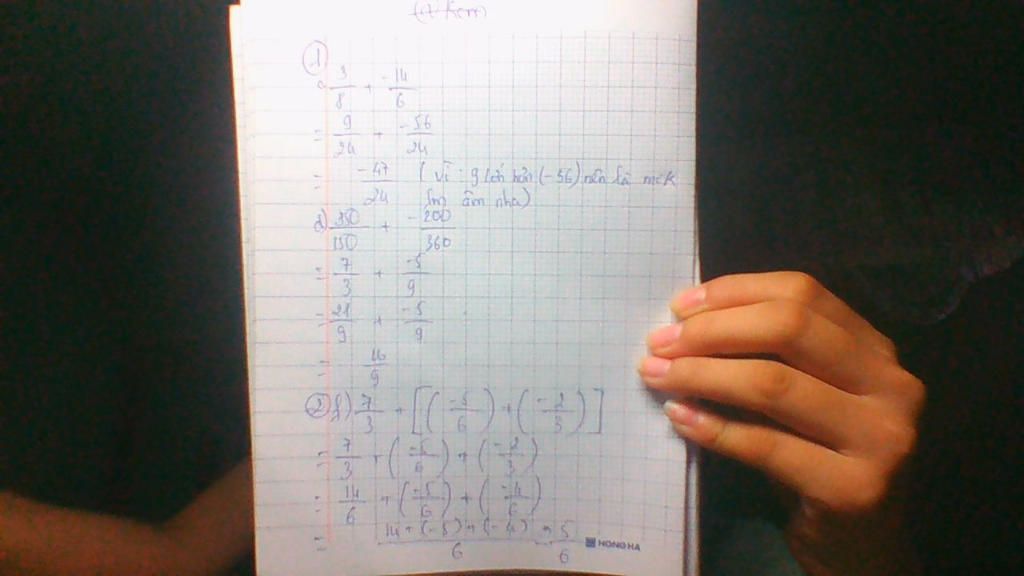 1
3/8 + -14/6
= 9/24 + -56/24
= -47/24 ( vì : 9 lớn hơn (-56) nên là
âm nha)
d) 350/150 + -200/360
= 7/3 + -5/9
= 21/9 + -5/9
= 16/9
2 f) 7/3 + [(-5/6) + (-2/3)]
= 7/3 + (-5/6) + (-2/3)
= 14/6 + (-5/6) + (-4/6)
= 14 + (-5) + (-4)/6 = 5/6
HONG HA